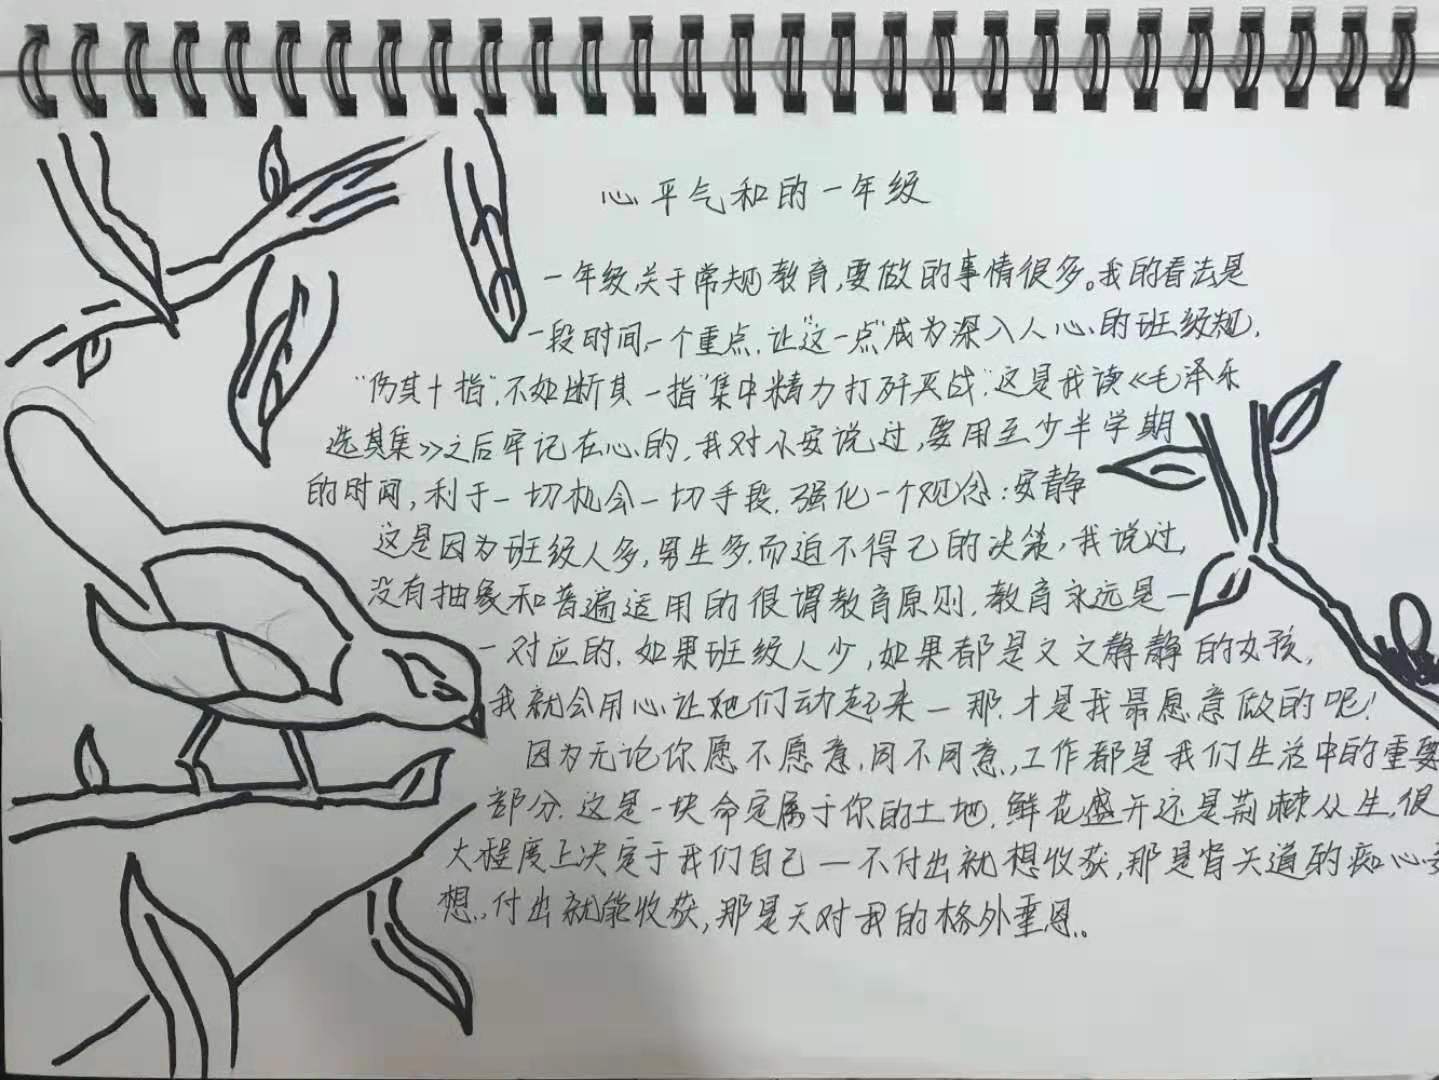 心平气和的一年级
一年级,关于常规教育,要做的事情很多。我的看法是
一段时间,一个重点.让“这一点”成为深入人心的班级规.
“伤其十指”,不如断其一指“集中精力打歼灭战”.这是我读《毛泽东
选其集》之后牢记在心的.我对小安说过,要用至少半学期
的时间,利于一切机会一切手段.强化一个观念:安静
这是因为班级人多,男生多.而迫不得已的决策,我说过,
没有抽象和普遍适用的很谓教育原则.教育永远是一
一对应的.如果班级人少,如果都是文文静静的女孩,
我就会用心让她们动起来一那.才是我最愿意做的呢!
因为无论你愿不愿意.同不同意,工作都是我们生活中的重要
部分.这是一块命定属于你的土地.鲜花盛开还是荆棘从生,很
大程度上决定于我们自己一不付出就想收获,那是背天道的痴心
想..付出就能收获,那是天对我的格外垂恩..